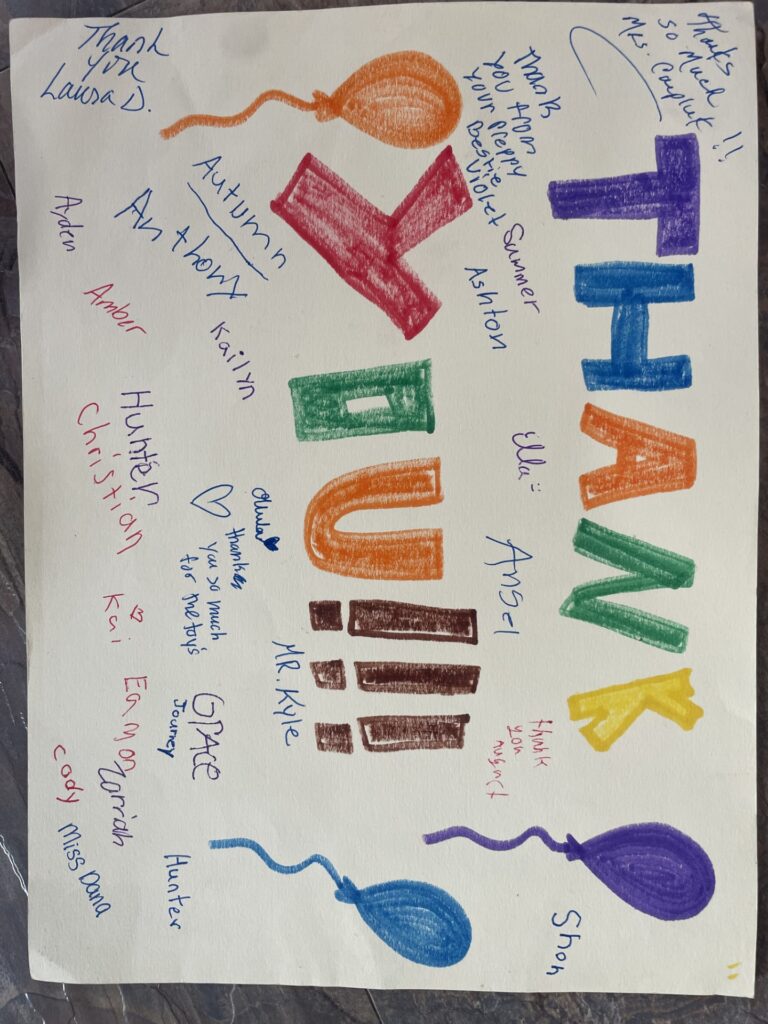 THANK
YOU!!!
Thanks
so much
Mrs.
!!
Thank
you from
your preppy
bestie
Violet
Summer
Ashton
Ella
Ansel
thank
you
august
Shon
Thank
you
Laura D.
Autumn
Anthony
Kailyn
Ayden
Amber
Hunter
Christian
thanks
you so much
for the toys
MR. Kyle
Grace
Journey
Kai
Eamon
Zarriah
Cody
Miss Dana
Hunter